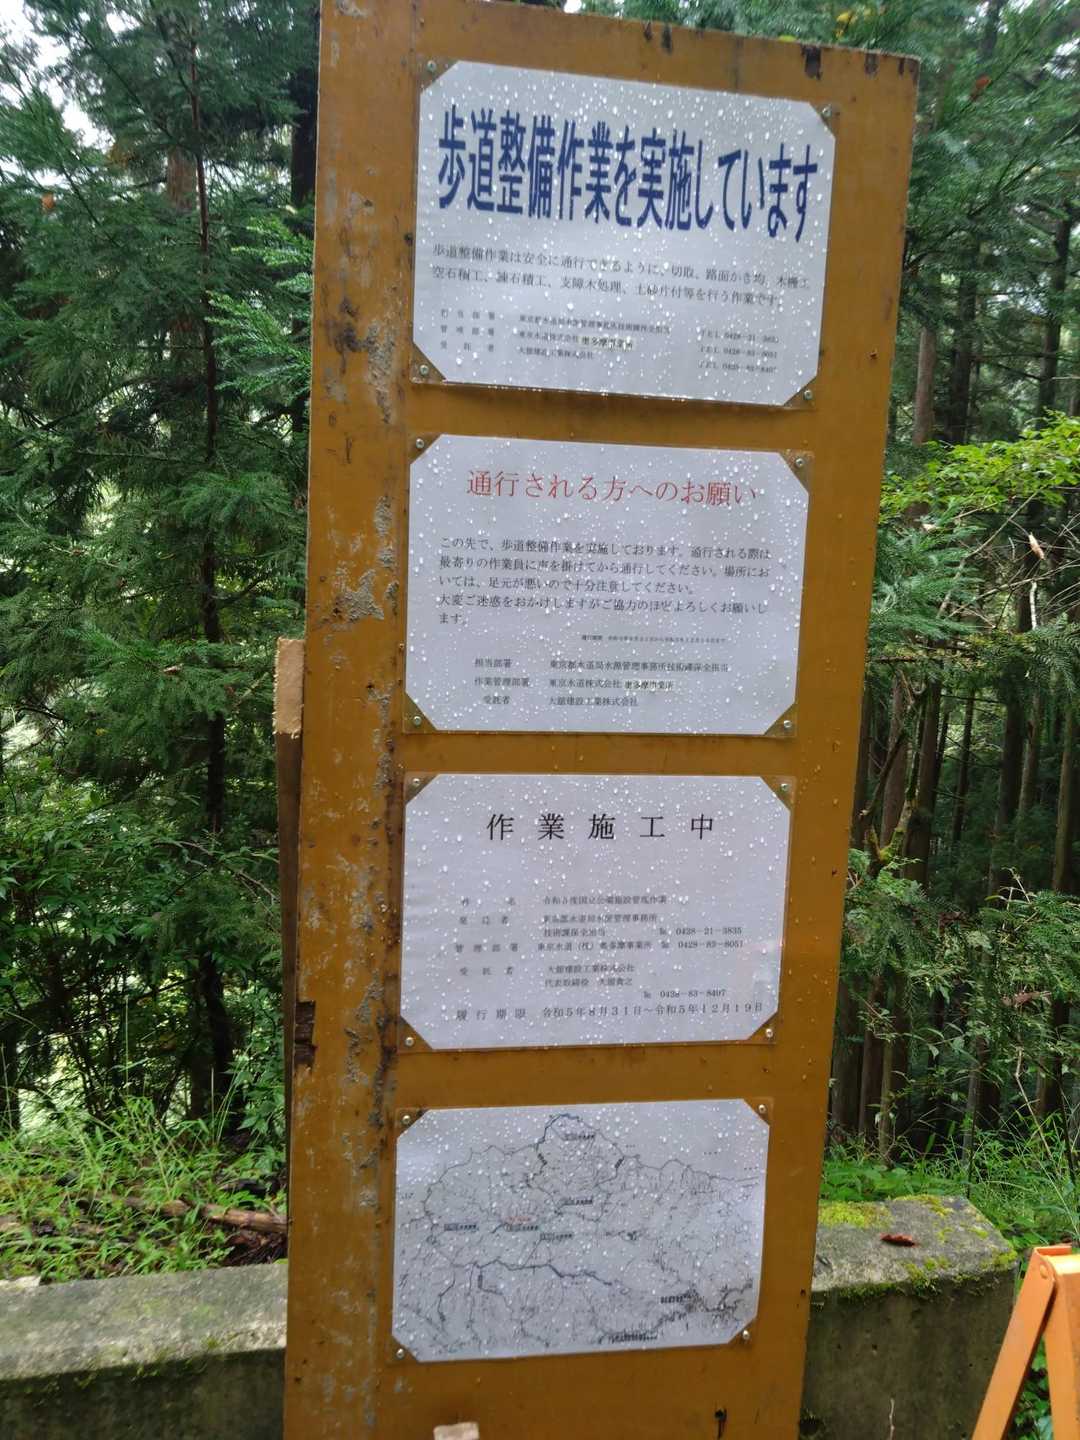 歩道整備作業を実施しています
歩道整備作業は安全に通行できるように、切取、路面かき均、木柵工
空石積工、練石積工、支障木処理、土砂片付等を行う作業です。
担当部署 東京都水道局水源管理事務所技術課保全担当 TEL 0428-21-3835
管理部署 東京水道株式会社 奥多摩事業所 TEL 0428-83-8051
受託者 大舘建設工業株式会社 TEL 0428-83-8407
通行される方へのお願い
この先で、歩道整備作業を実施しております。通行される際は
最寄りの作業員に声を掛けてから通行してください。場所にお
いては、足元が悪いので十分注意してください。
大変ご迷惑をおかけしますがご協力のほどよろしくお願いし
ます。
担当部署 東京都水道局水源管理事務所技術課保全担当
作業管理部署 東京水道株式会社 奥多摩事業所
受託者 大舘建設工業株式会社
作業施工中
件名 令和5度国立公園施設管理作業
発注者 東京都水道局水源管理事務所
技術課保全担当 ℡ 0428-21-3835
管理部署 東京水道(株)奥多摩事業所 ℡ 0428-83-8051
受託者 大舘建設工業株式会社
代表取締役
℡ 0428-83-8407
履行期限 令和5年8月31日~令和5年12月19日